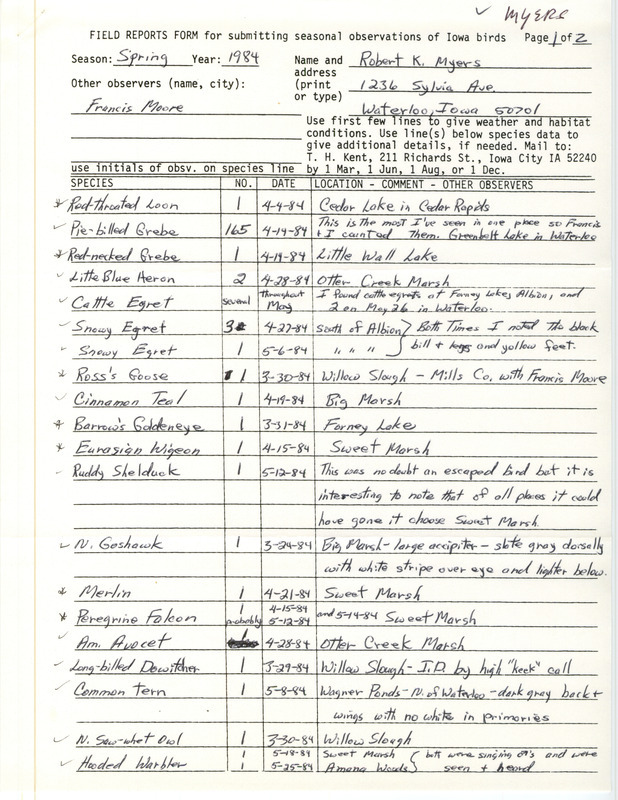 ✓ MYERS
FIELD REPORTS FORM for submitting seasonal observations of Iowa birds Page 1 of 2
Season: Spring Year: 1984 Name and address (print or type) Robert K. Myers
1236 Sylvia Ave.
Waterloo, Iowa 50701
Other observers (name, city):
Francis Moore
Use first few lines to give weather and habitat
conditions. Use line(s) below species data to
give additional details, if needed. Mail to:
T. H. Kent, 211 Richards St., Iowa City IA 52240
use initials of obsv. on species line by 1 Mar, 1 Jun, 1 Aug, or 1 Dec.
SPECIES NO. DATE LOCATION - COMMENT - OTHER OBSERVERS
* Red-throated Loon 1 4-4-84 Cedar Lake in Cedar Rapids
✓ Pie-billed Grebe 165 4-14-84 This is the most I've seen in one place so Francis
+ I counted them. Greenbelt Lake in Waterloo
* Red-necked Grebe 1 4-19-84 Little Wall Lake
✓ Little Blue Heron 2 4-28-84 Otter Creek Marsh
✓ Cattle Egret several throughout May I found cattle egrets at Forney Lake, Albion, and
2 on May 26 in Waterloo.
✓ Snowy Egret 3 4-27-84 South of Albion } Both Times I noted the black
✓ Snowy Egret 1 5-6-84 " " " } bill + legs and yellow feet.
* Ross's Goose 1 3-30-84 Willow Slough - Mills Co. with Francis Moore
✓ Cinnamon Teal 1 4-19-84 Big Marsh
* Barrow's Goldeneye 1 3-31-84 Forney Lake
* Eurasian Wigeon 1 4-15-84 Sweet Marsh
✓ Ruddy Shelduck 1 5-12-84 This was no doubt an escaped bird but it is
interesting to note that of all places it could
have gone it choose Sweet Marsh.
✓ N. Goshawk 1 3-24-84 Big Marsh - large accipiter - slate gray dorsally
with white stripe over eye and lighter below.
* Merlin 1 4-21-84 Sweet Marsh
* Peregrine Falcon 1 probably 4-15-84 5-12-84 and 5-14-84 Sweet Marsh
✓ Am. Avocet 4-28-84 Otter Creek Marsh
✓ Long-billed Dowitcher 1 3-29-84 Willow Slough - I.D. by high "keek" call
✓ Common Tern 1 5-8-84 Wagner Ponds - N. of Waterloo - dark gray back +
wings with no white in primaries
✓ N. Saw-whet Owl 1 3-30-84 Willow Slough
✓ Hooded Warbler 1 5-18-84 Sweet Marsh { both were singing ♂'s and were
1 5-25-84 Amana Woods { seen + heard